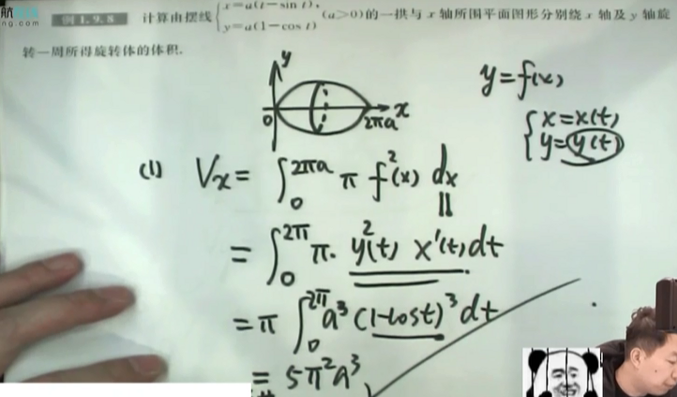 航
ng.com
例1.9.8 计算由摆线{x=a(t-sin t), y=a(1-cos t) (a>0)的一拱与 x 轴所围平面图形分别绕 x 轴及 y 轴旋
转一周所得旋转体的体积.
y
0 2πa x
y=f(x)
{x=x(t)
y=y(t)
(1) Vx=∫₀^{2πa} π f²(x) dx
=∫₀^{2π} π·y²(t) x'(t)dt
=π∫₀^{2π} a³(1-cost)³dt
=5π²a³